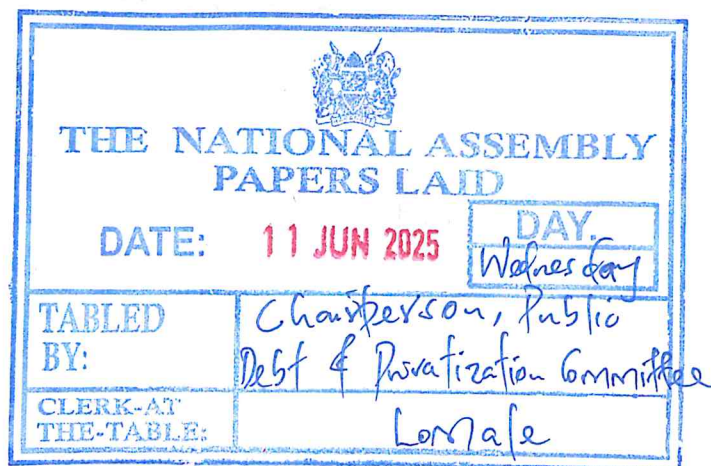 THE NATIONAL ASSEMBLY
PAPERS LAID
DATE: 11 JUN 2025
DAY.
Wednesday
TABLED BY:
Chairperson, Public
Debt & Privatization Committee
CLERK-AT
THE-TABLE: